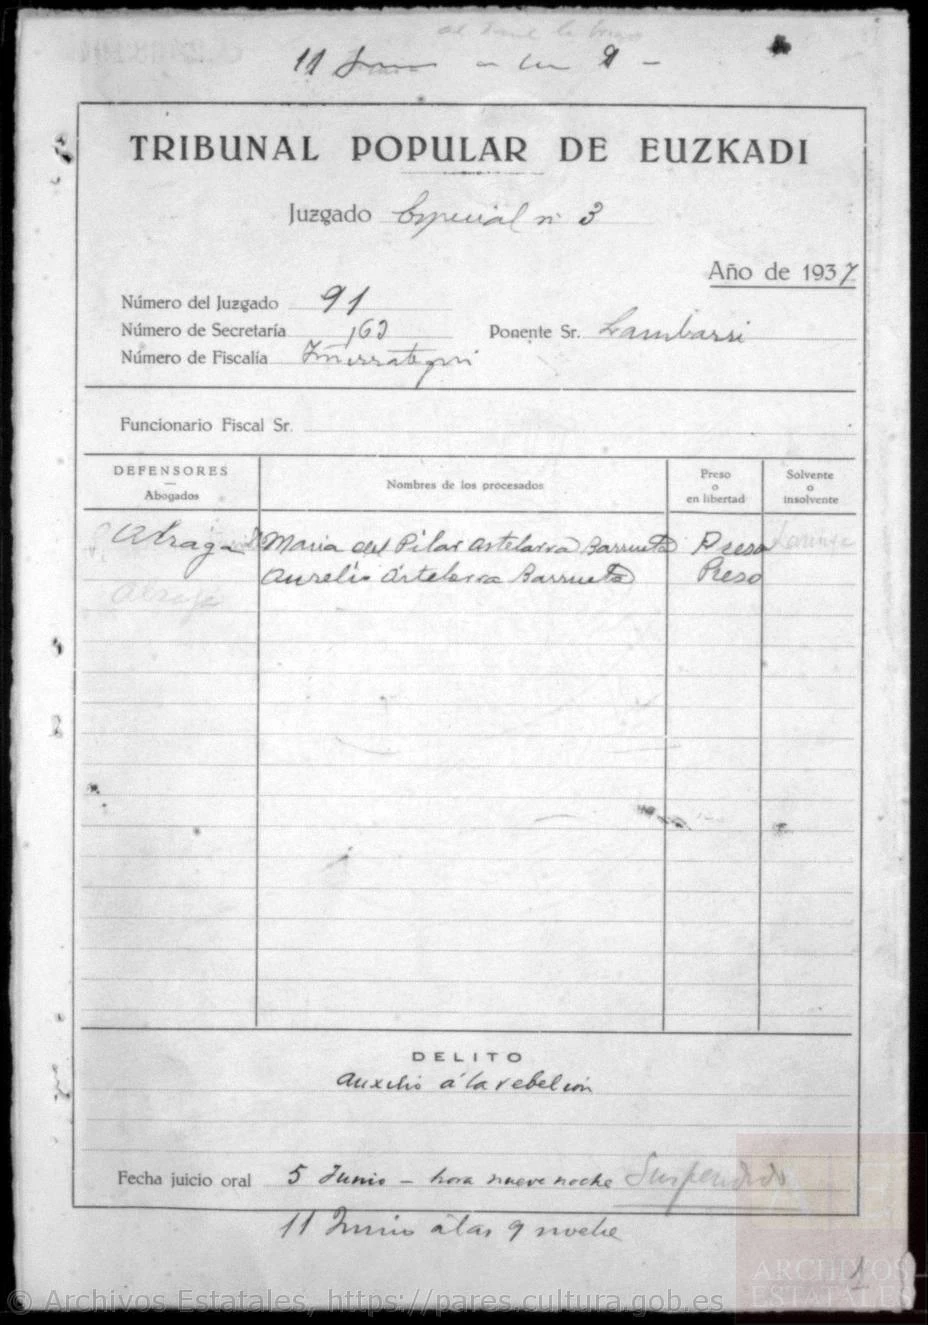 11 Junio a las 9 -
TRIBUNAL POPULAR DE EUZKADI
Juzgado Especial nº 3
Año de 1937
Número del Juzgado 91
Número de Secretaría 163 Ponente Sr. Lambarri
Número de Fiscalía
Funcionario Fiscal Sr.
DEFENSORES
Abogados
Nombres de los procesados
Preso
o
en libertad
Solvente
o
insolvente
Maria del Pilar Artelarra Barrueta Presa
Aurelio Artelarra Barrueta Preso
DELITO
Auxilio á la rebelión
Fecha juicio oral 5 Junio - hora nueve noche Suspendido
11 Junio a las 9 noche
1
ARCHIVOS
ESTATALES
© Archivos Estatales, https://pares.cultura.gob.es